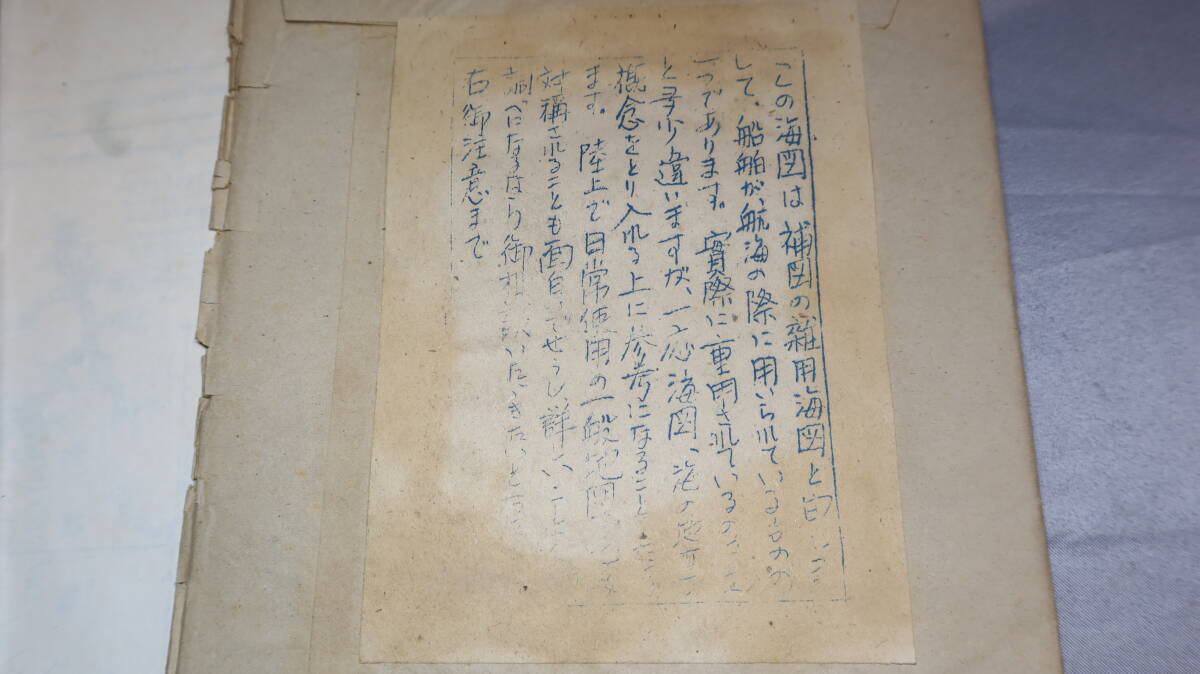 この海図は補図の雑用海図と
して、船舶が、航海の際に用いられているものの
一つであります。實際に重用されているの
と多少違いますが、一応海図、海の
概念をとり入れる上に参考になること
ます。陸上で日常使用の一般地図
対稱されることも面白いでせうし、詳しいこと
調べになるなり御相談いたゞきたいと
右御注意まで